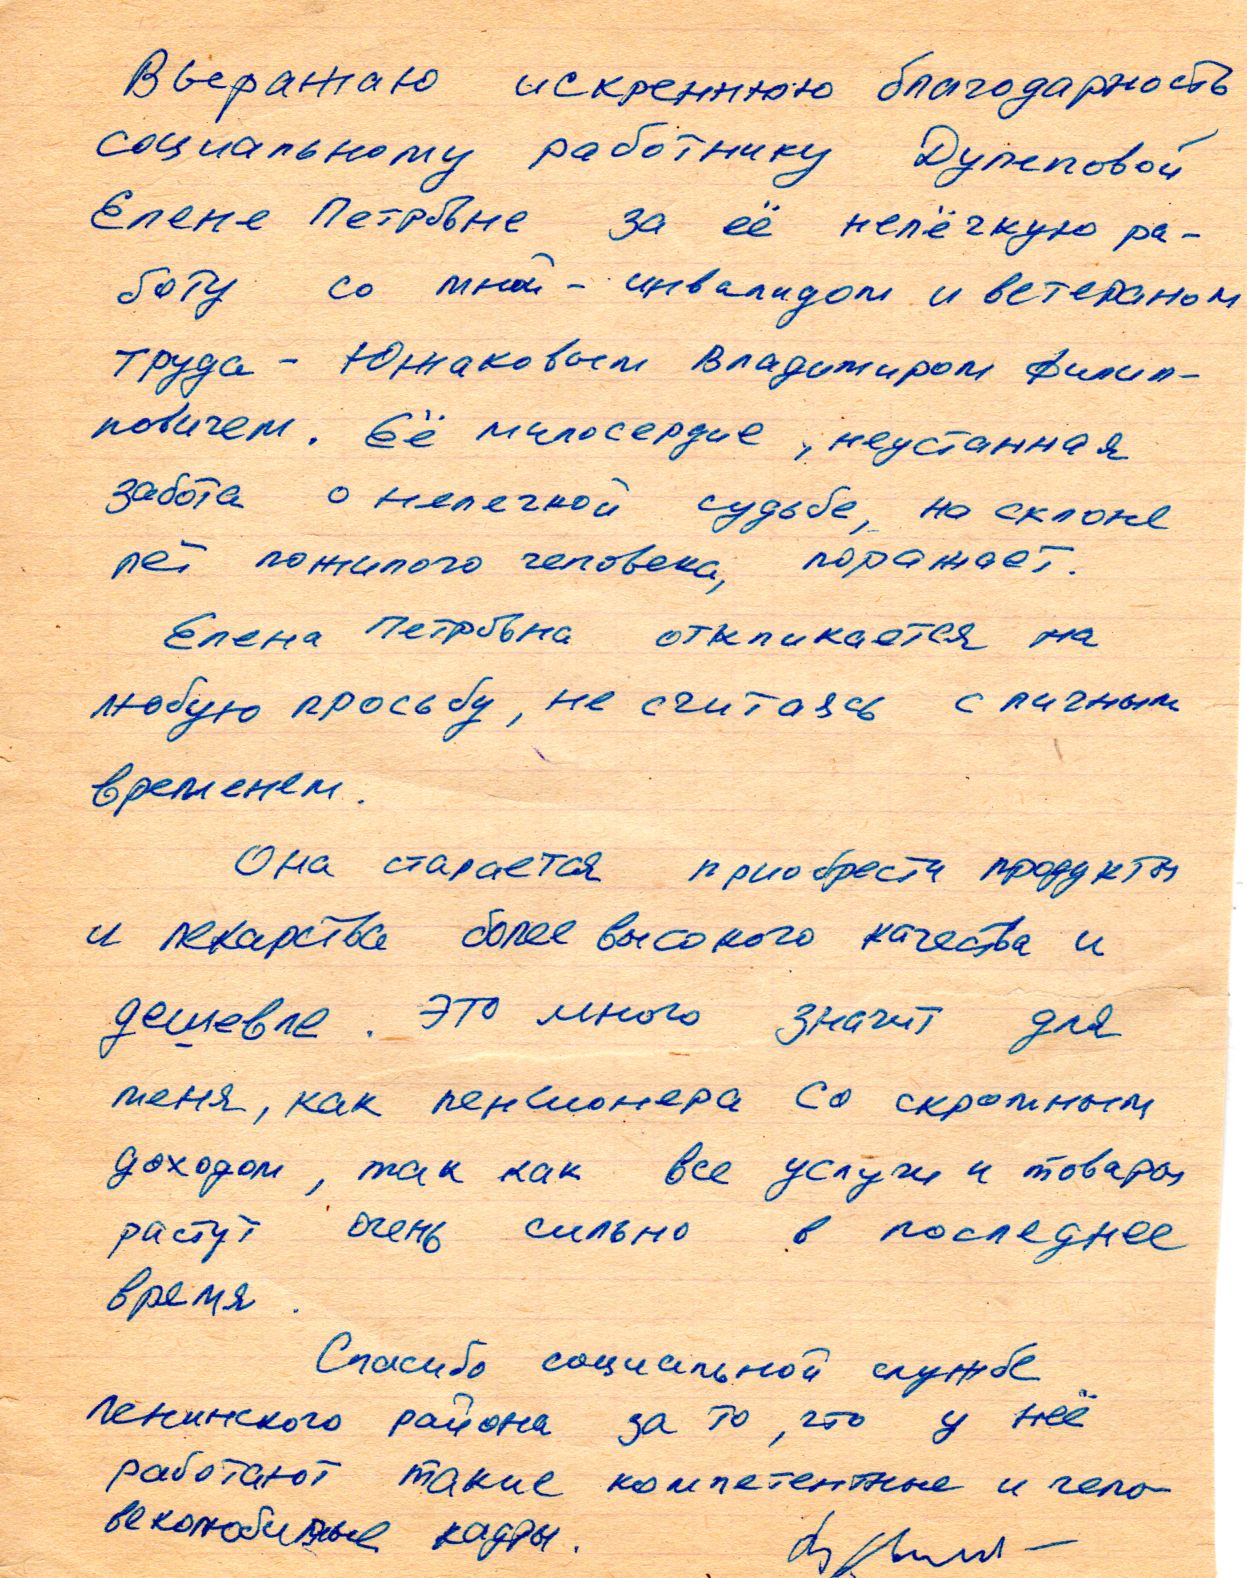 Выражаю искреннюю благодарность
социальному работнику Дулеповой
Елене Петровне за её нелёгкую ра-
боту со мной - инвалидом и ветераном
труда - Южаковым Владимиром Филип-
повичем. Её милосердие, неустанная
забота о нелегкой судьбе, на склоне
лет пожилого человека, поражает.
Елена Петровна откликается на
любую просьбу, не считаясь с личным
временем.
Она старается приобрести продукты
и лекарства более высокого качества и
дешевле. Это много значит для
меня, как пенсионера со скромным
доходом, так как все услуги и товары
растут очень сильно в последнее
время.
Спасибо социальной службе
Ленинского района за то, что у неё
работают такие компетентные и чело-
веколюбивые кадры.